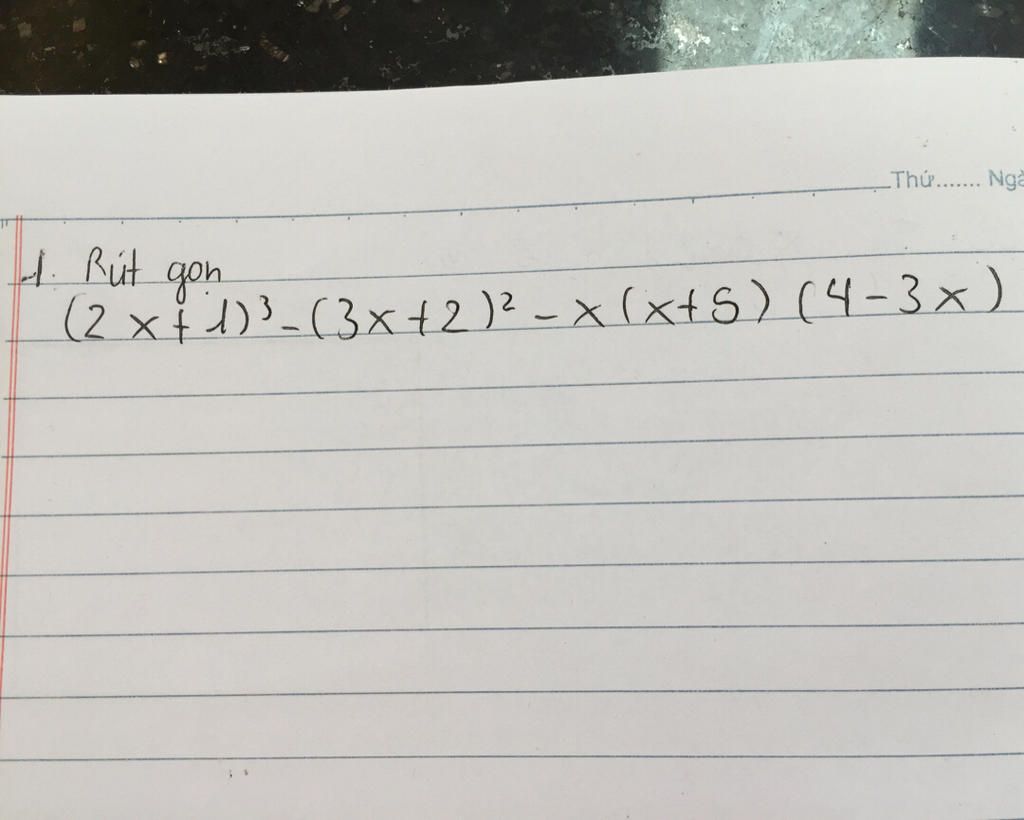 Thứ....... Ngà
1. Rút gọn
(2x+1)³-(3x+2)² - x(x+5) (4-3x)